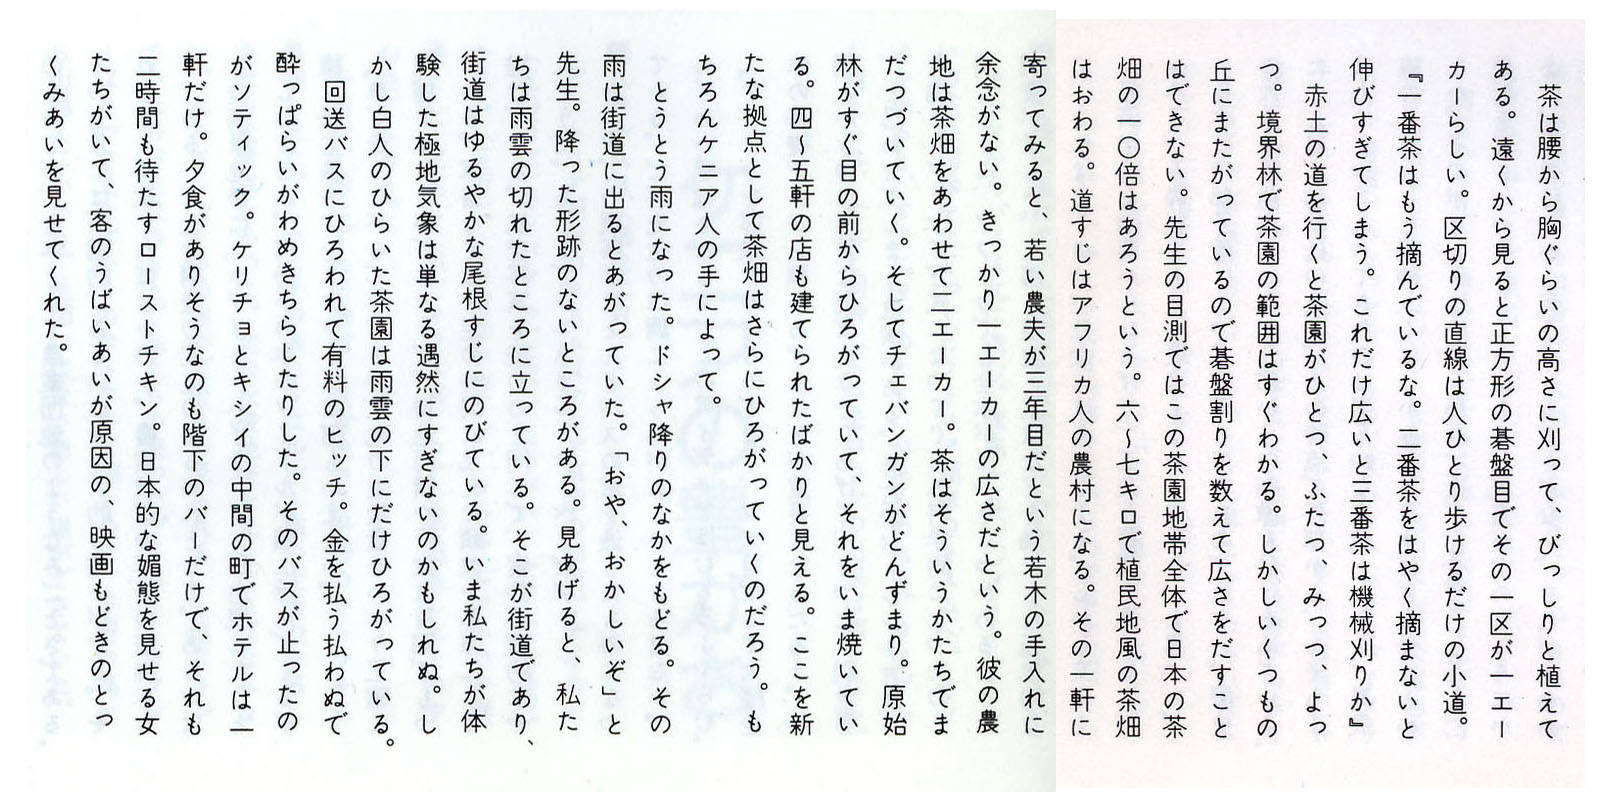 茶は腰から胸ぐらいの高さに刈って、びっしりと植えて
ある。遠くから見ると正方形の碁盤目でその一区が一エー
カーらしい。区切りの直線は人ひとり歩けるだけの小道。
『一番茶はもう摘んでいるな。二番茶をはやく摘まないと
伸びすぎてしまう。これだけ広いと三番茶は機械刈りか』
　赤土の道を行くと茶園がひとつ、ふたつ、みっつ、よっ
つ。境界林で茶園の範囲はすぐわかる。しかしいくつもの
丘にまたがっているので碁盤割りを数えて広さをだすこと
はできない。先生の目測ではこの茶園地帯全体で日本の茶
畑の一〇倍はあろうという。六〜七キロで植民地風の茶畑
はおわる。道すじはアフリカ人の農村になる。その一軒に
寄ってみると、若い農夫が三年目だという若木の手入れに
余念がない。きっかり一エーカーの広さだという。彼の農
地は茶畑をあわせて二エーカー。茶はそういうかたちでま
だつづいていく。そしてチェバンガンがどんずまり。原始
林がすぐ目の前からひろがっていて、それをいま焼いてい
る。四〜五軒の店も建てられたばかりと見える。ここを新
たな拠点として茶畑はさらにひろがっていくのだろう。も
ちろんケニア人の手によって。
　とうとう雨になった。ドシャ降りのなかをもどる。その
雨は街道に出るとあがっていた。「おや、おかしいぞ」と
先生。降った形跡のないところがある。見あげると、私た
ちは雨雲の切れたところに立っている。そこが街道であり、
街道はゆるやかな尾根すじにのびている。いま私たちが体
験した極地気象は単なる遇然にすぎないのかもしれぬ。し
かし白人のひらいた茶園は雨雲の下にだけひろがっている。
　回送バスにひろわれて有料のヒッチ。金を払う払わぬで
酔っぱらいがわめきちらしたりした。そのバスが止ったの
がソティック。ケリチョとキシイの中間の町でホテルは一
軒だけ。夕食がありそうなのも階下のバーだけで、それも
二時間も待たすローストチキン。日本的な媚態を見せる女
たちがいて、客のうばいあいが原因の、映画もどきのとっ
くみあいを見せてくれた。